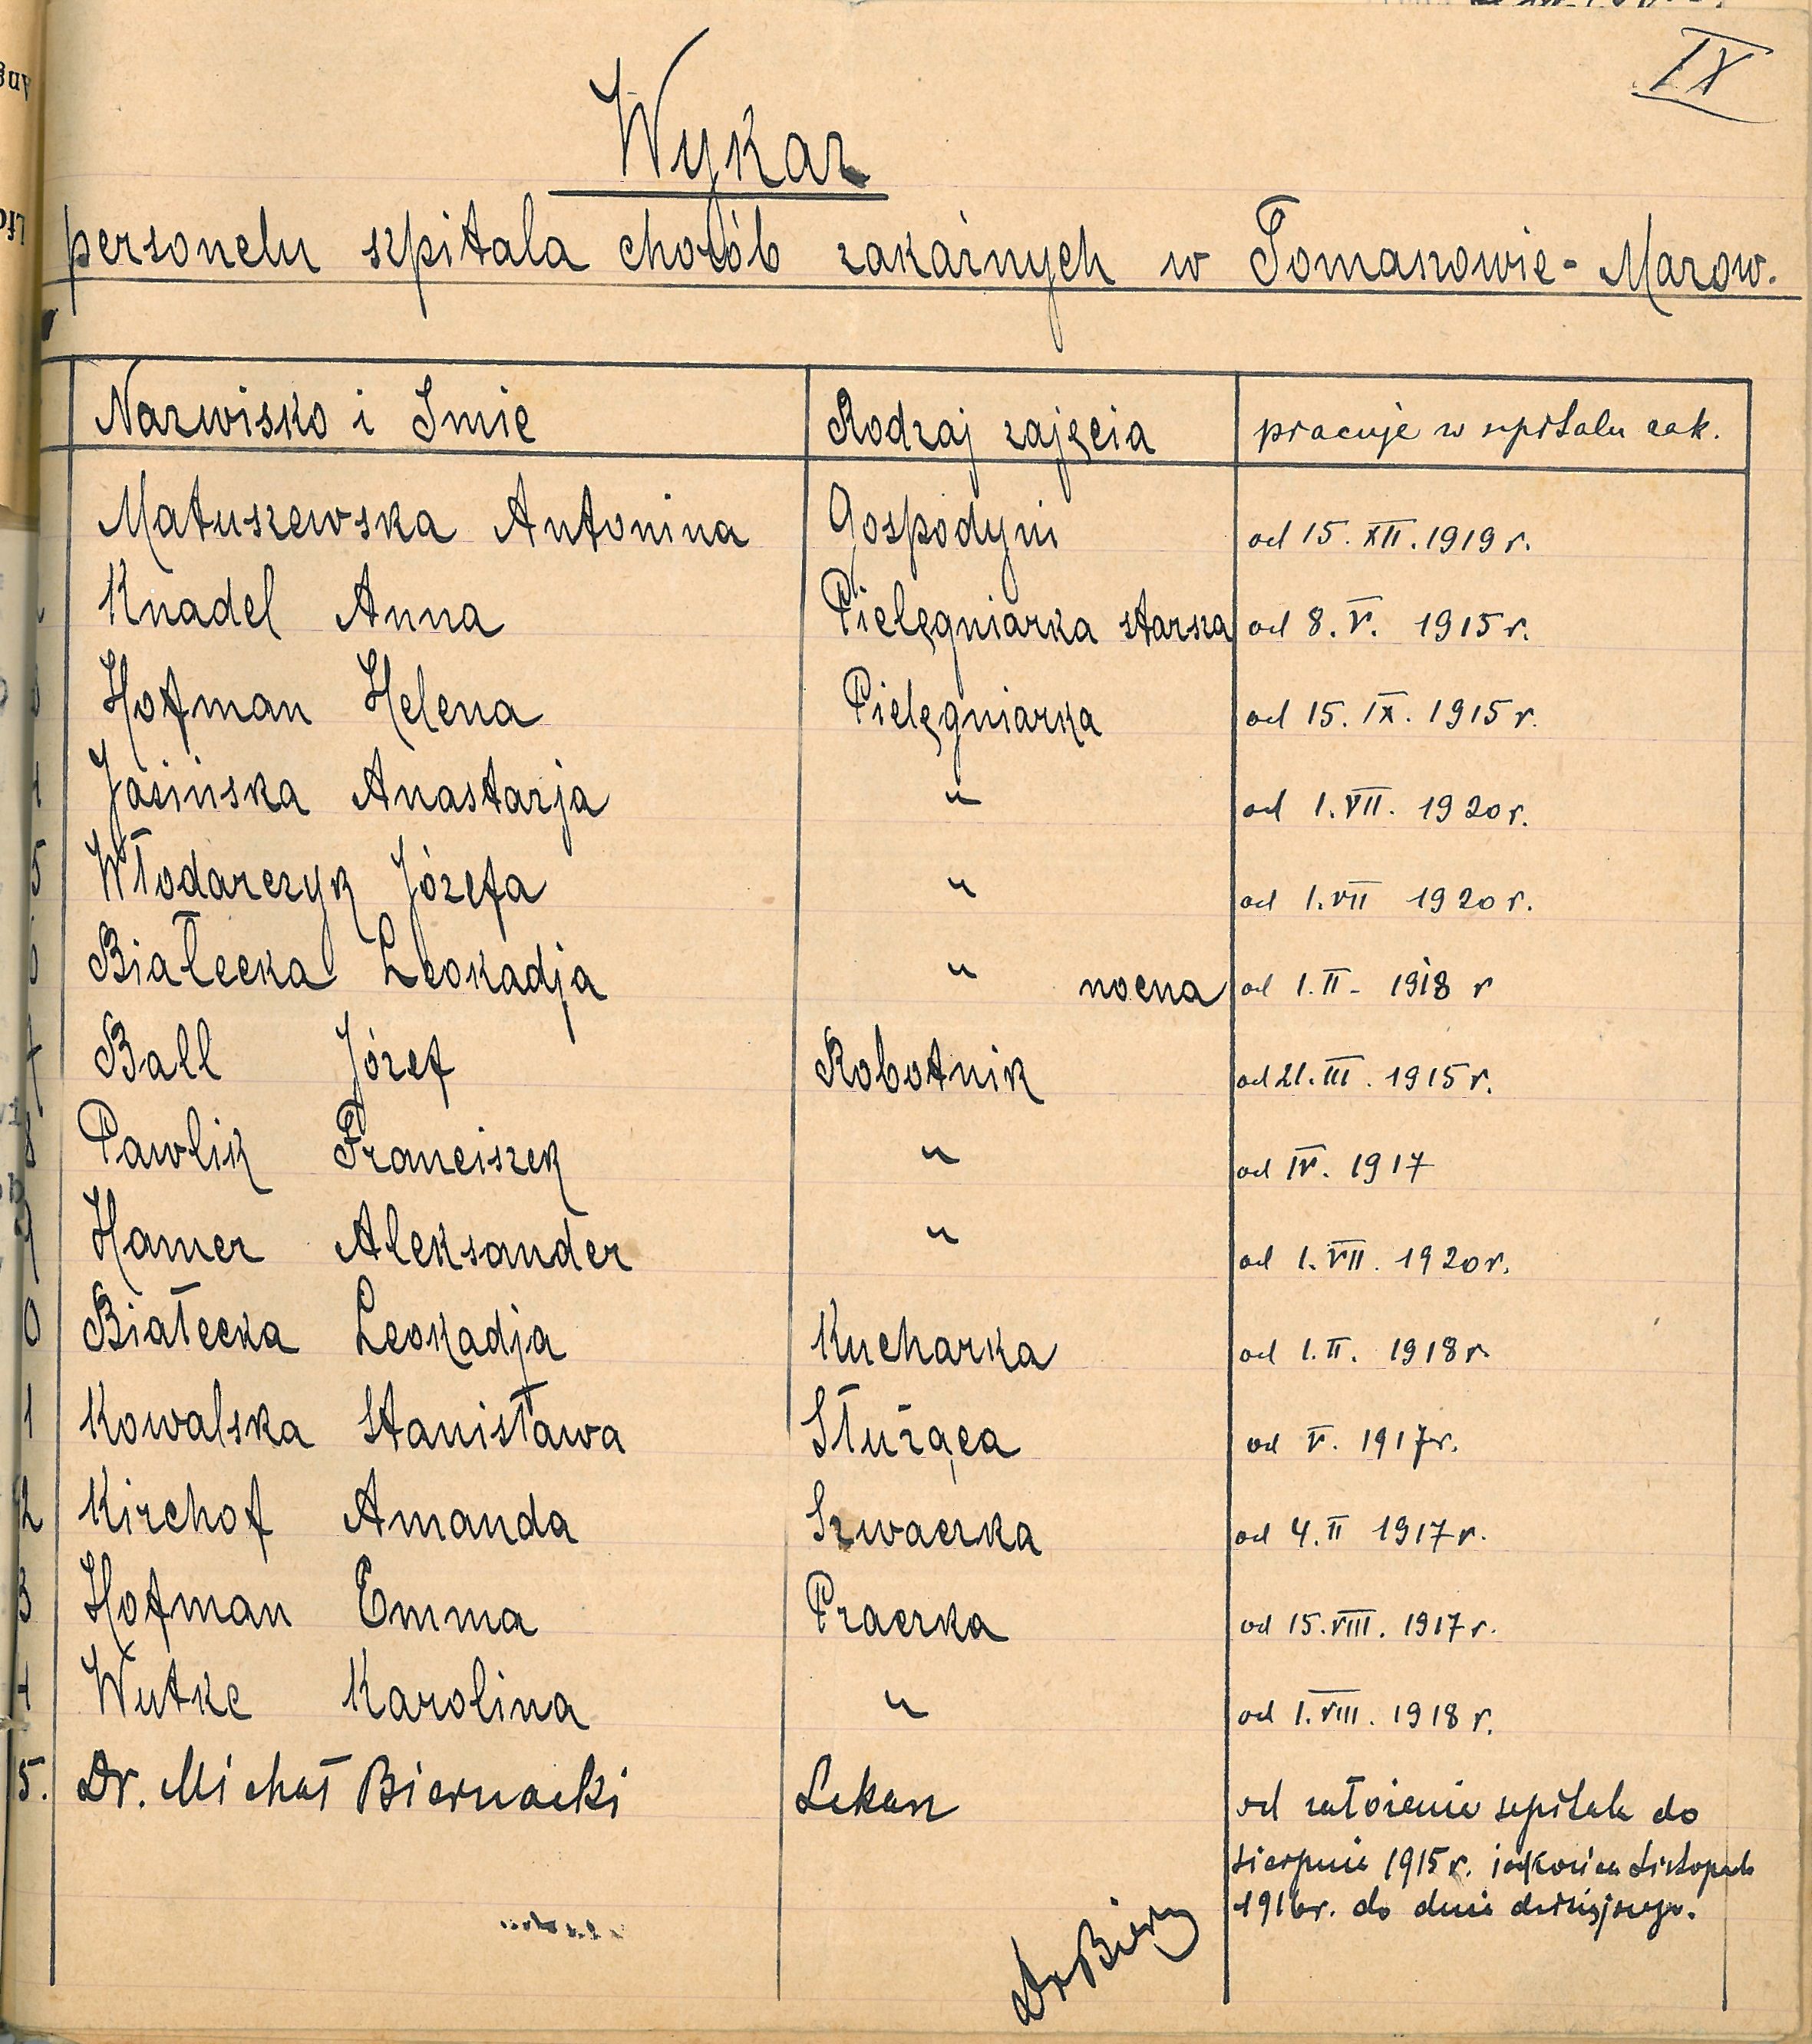 IX
Wykaz
personelu szpitala chorób zakaźnych w Tomaszowie-Mazow.
Nazwisko i Imię Rodzaj zajęcia pracuje w szpitalu zak.
Matuszewska Antonina Gospodyni od 15. XII. 1919 r.
Knadel Anna Pielęgniarka starsza od 8. V. 1915 r.
3 Hofman Helena Pielęgniarka od 15. IX. 1915 r.
4 Jasińska Anastazja " od 1. VII. 1920 r.
5 Włodarczyk Józefa " od 1. VII 1920 r.
6 Białecka Leokadja " nocna od 1. II - 1918 r
7 Ball Józef Robotnik od 21. III. 1915 r.
8 Pawlik Franciszek " od IV. 1917
9 Hamer Aleksander " od 1. VII. 1920 r.
0 Białecka Leokadja Kucharka od 1. II. 1918 r
1 Kowalska Stanisława Służąca od V. 1917 r.
2 Kirchof Amanda Szwaczka od 4. II 1917 r.
3 Hofman Emma Praczka od 15. VIII. 1917 r.
4 Wutke Karolina " od 1. VIII. 1918 r.
5. Dr. Michał Biernacki Lekarz od założenia szpitala do
sierpnia 1915 r. i od końca Listopada
1916 r. do dnia dzisiejszego.
Dr Biern